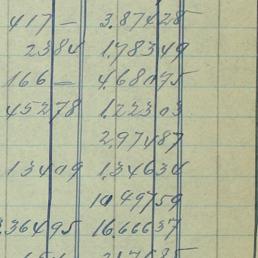 417 — 3.87428
2384 1.78349
166 — 4.68075
45278 1.22303
2.97487
13409 1.34634
10.49759
.36495 16.66637